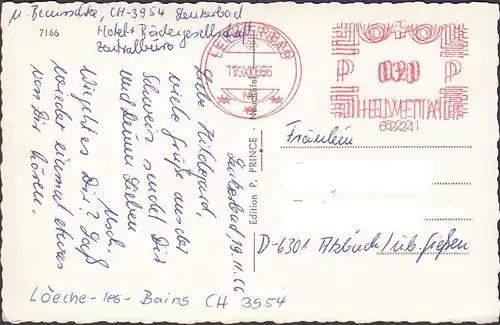 CH-3954 Leukerbad
Hotel + Bädergesellschaft
Zentralbüro
7166
Leukerbad, 19.11.66
Liebe Hildegard,
viele Grüße aus der
Schweiz sendet Dir
und Deinen Lieben
Usch.
Wie geht es Dir? Laß
wieder einmal etwas
von Dir hören.
Edition P. PRINCE - Neuchâtel
LEUKERBAD
HELVETIA
P 020 P
Fräulein
D-6301 Atzbach/üb. Gießen
Loèche-les-Bains CH 3954